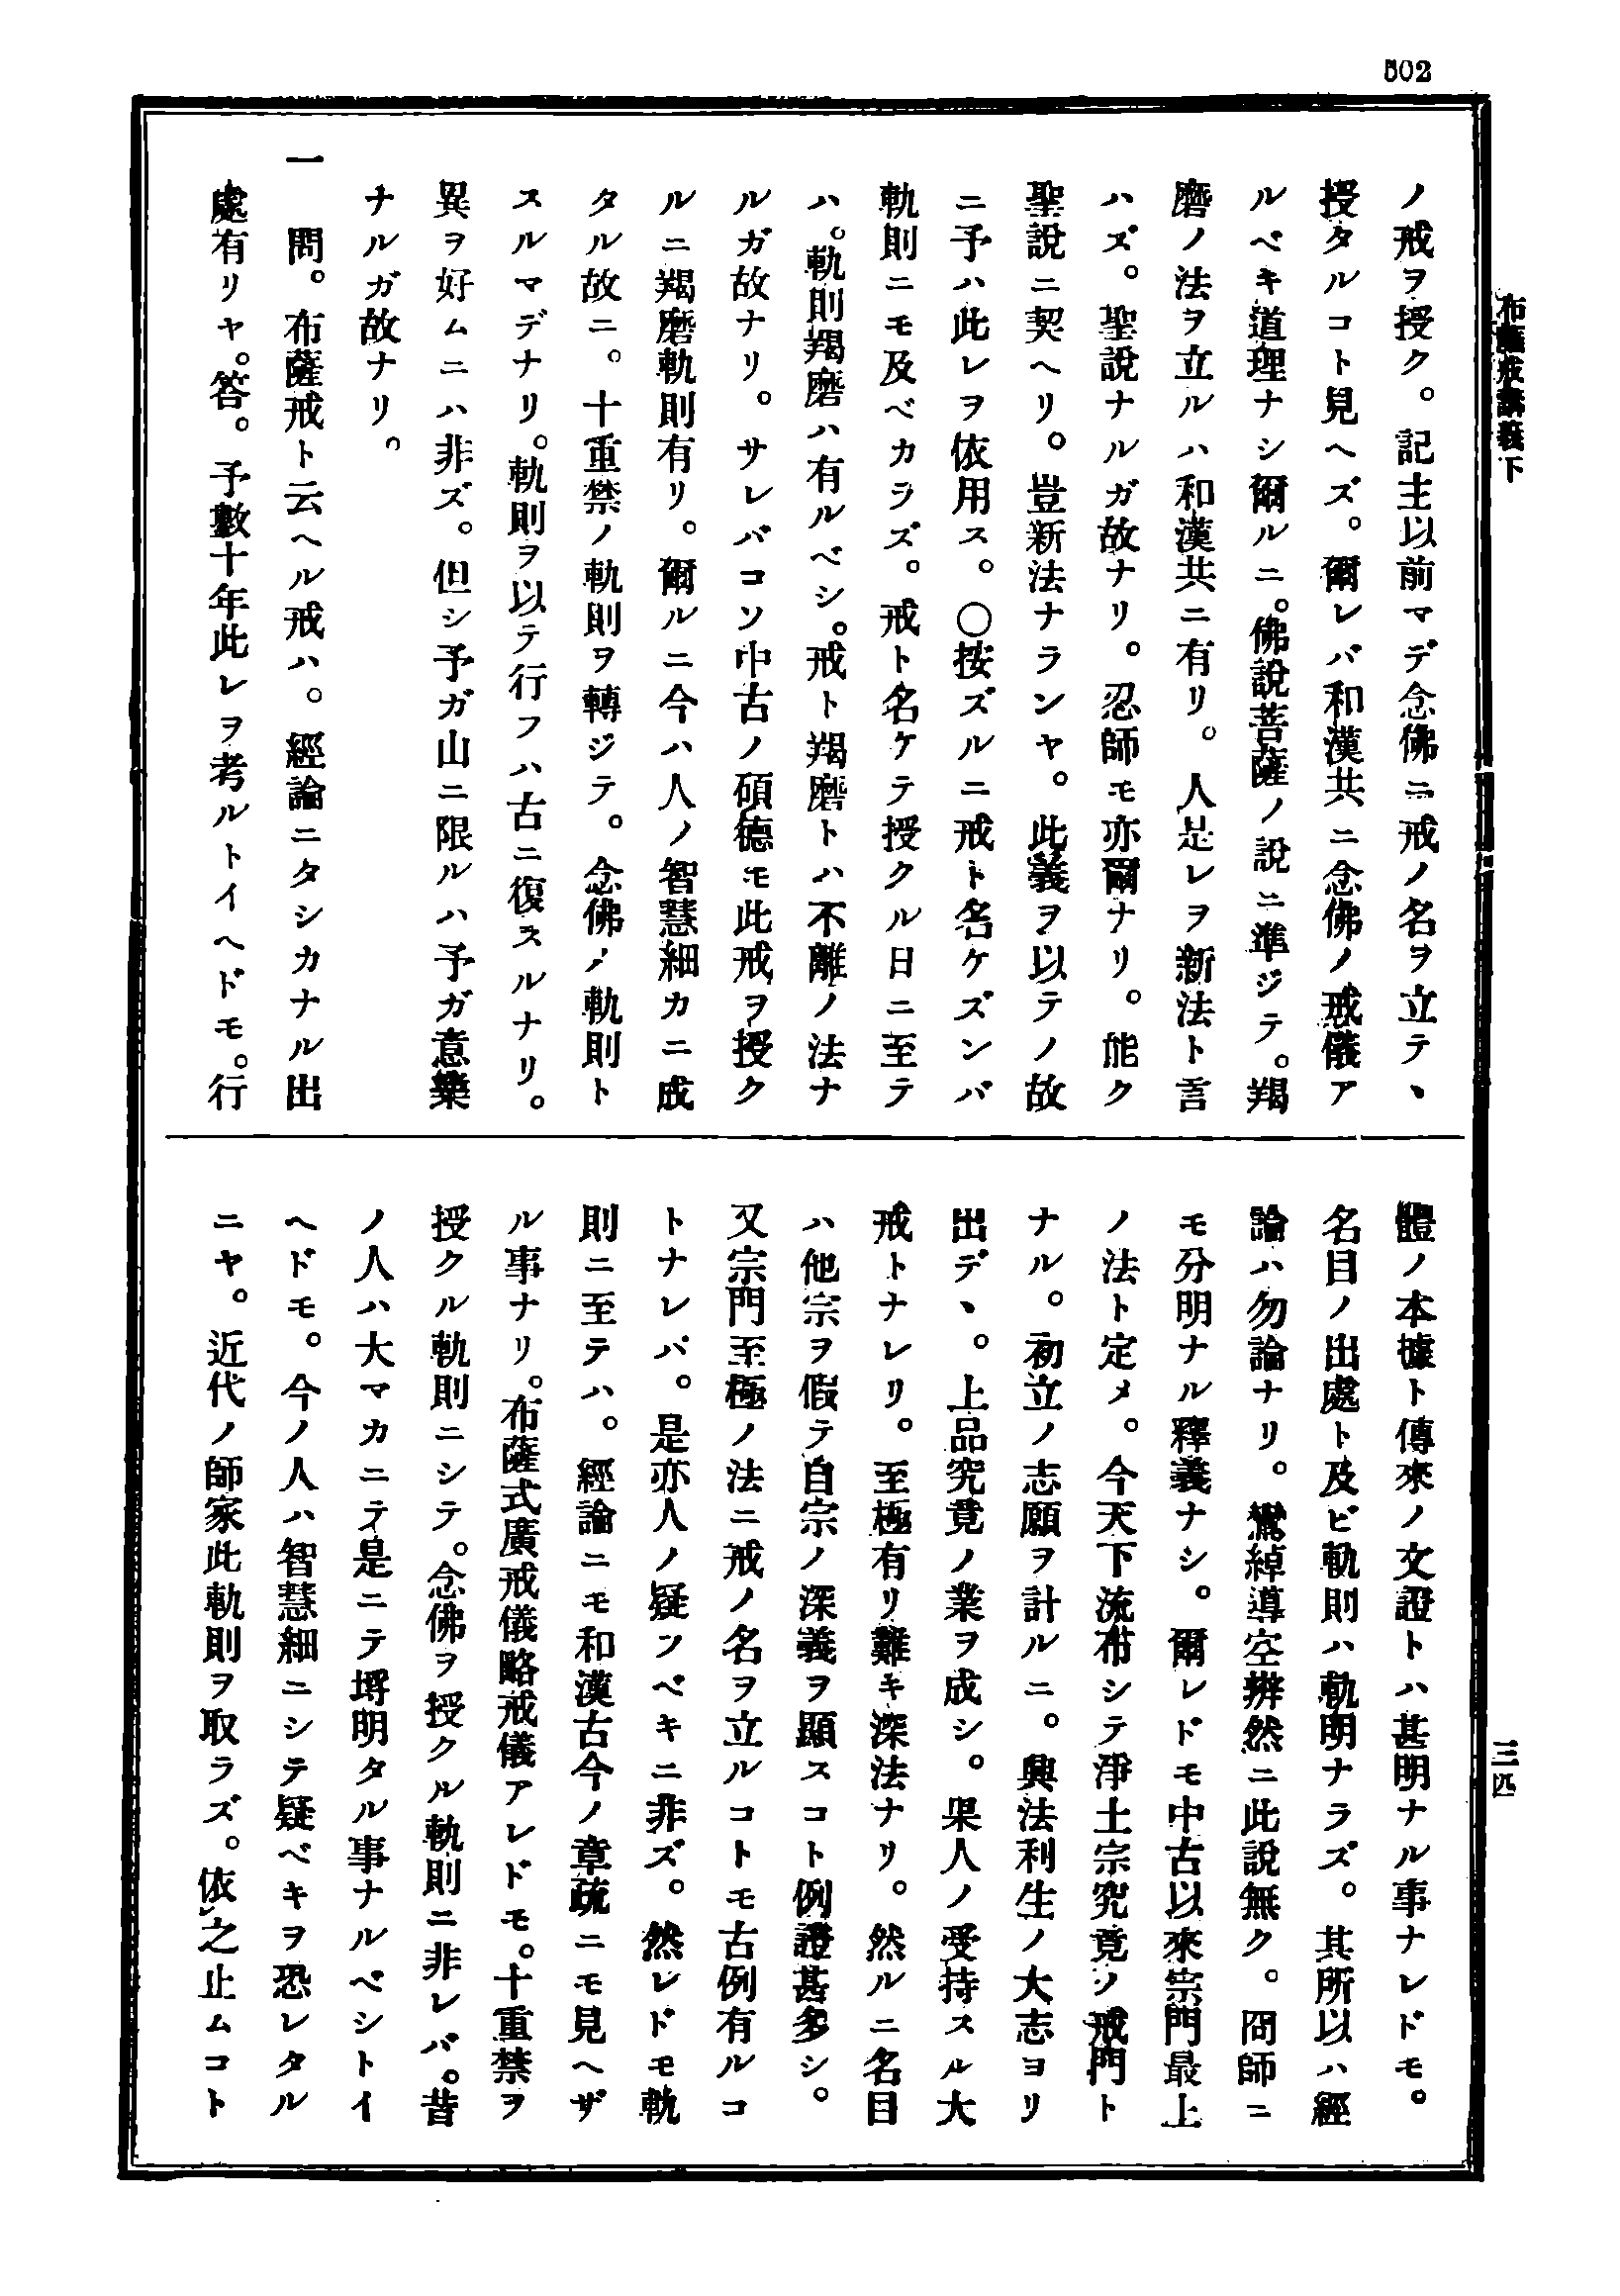 502
布薩戒講義下
三四
ノ戒ヲ授ク。記主以前マデ念佛ニ戒ノ名ヲ立テ、
授タルコト見ヘズ。爾レバ和漢共ニ念佛ノ戒儀ア
ルベキ道理ナシ爾ルニ。佛說菩薩ノ說ニ準ジテ。羯
磨ノ法ヲ立ルハ和漢共ニ有リ。人是レヲ新法ト言
ハズ。聖說ナルガ故ナリ。忍師モ亦爾ナリ。能ク
聖說ニ契ヘリ。豈新法ナランヤ。此義ヲ以テノ故
ニ予ハ此レヲ依用ス。○按ズルニ戒ト名ケズンバ
軌則ニモ及ベカラズ。戒ト名ケテ授クル日ニ至テ
ハ。軌則羯磨ハ有ルベシ。戒ト羯磨トハ不離ノ法ナ
ルガ故ナリ。サレバコソ中古ノ碩德モ此戒ヲ授ク
ルニ羯磨軌則有リ。爾ルニ今ハ人ノ智慧細カニ成
タル故ニ。十重禁ノ軌則ヲ轉ジテ。念佛ノ軌則ト
スルマデナリ。軌則ヲ以テ行フハ古ニ復スルナリ。
異ヲ好ムニハ非ズ。但シ予ガ山ニ限ルハ予ガ意樂
ナルガ故ナリ。
一　問。布薩戒ト云ヘル戒ハ。經論ニタシカナル出
處有リヤ。答。予數十年此レヲ考ルトイヘドモ。行
體ノ本據ト傳來ノ文證トハ甚明ナル事ナレドモ。
名目ノ出處ト及ビ軌則ハ軌明ナラズ。其所以ハ經
論ハ勿論ナリ。鸞綽導空辨然ニ此說無ク。冏師ニ
モ分明ナル釋義ナシ。爾レドモ中古以來宗門最上
ノ法ト定メ。今天下流布シテ淨土宗究竟ノ戒門ト
ナル。初立ノ志願ヲ計ルニ。興法利生ノ大志ヨリ
出デ、。上品究竟ノ業ヲ成シ。果人ノ受持スル大
戒トナレリ。至極有リ難キ深法ナリ。然ルニ名目
ハ他宗ヲ假テ自宗ノ深義ヲ顯スコト例證甚多シ。
又宗門至極ノ法ニ戒ノ名ヲ立ルコトモ古例有ルコ
トナレバ。是亦人ノ疑フベキニ非ズ。然レドモ軌
則ニ至テハ。經論ニモ和漢古今ノ章疏ニモ見ヘザ
ル事ナリ。布薩式廣戒儀略戒儀アレドモ。十重禁ヲ
授クル軌則ニシテ。念佛ヲ授クル軌則ニ非レバ。昔
ノ人ハ大マカニテ是ニテ埒明タル事ナルベシトイ
ヘドモ。今ノ人ハ智慧細ニシテ疑ベキヲ恐レタル
ニヤ。近代ノ師家此軌則ヲ取ラズ。依之止ムコト